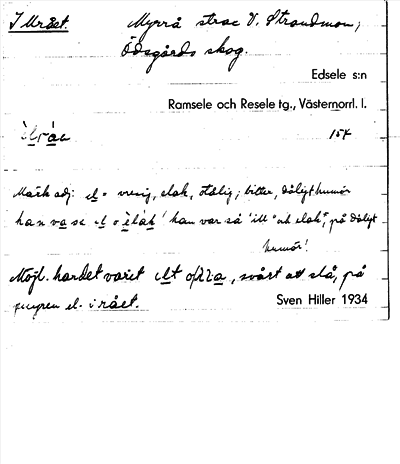 I Mrået Myrrå strac V. Strandmon,
Ödsgårds skog.
Edsele s:n
Ramsele och Resele tg., Västernorrl. l.
154
Märk adj. el = vresig, elak, stolig; bitter, dåligt humör
han va sc el o èlak' han var så "ill" och elak", på dåligt
humör!
Möjl. har det varit ilt , svårt att slå, på
el. i rået. Sven Hiller 1934